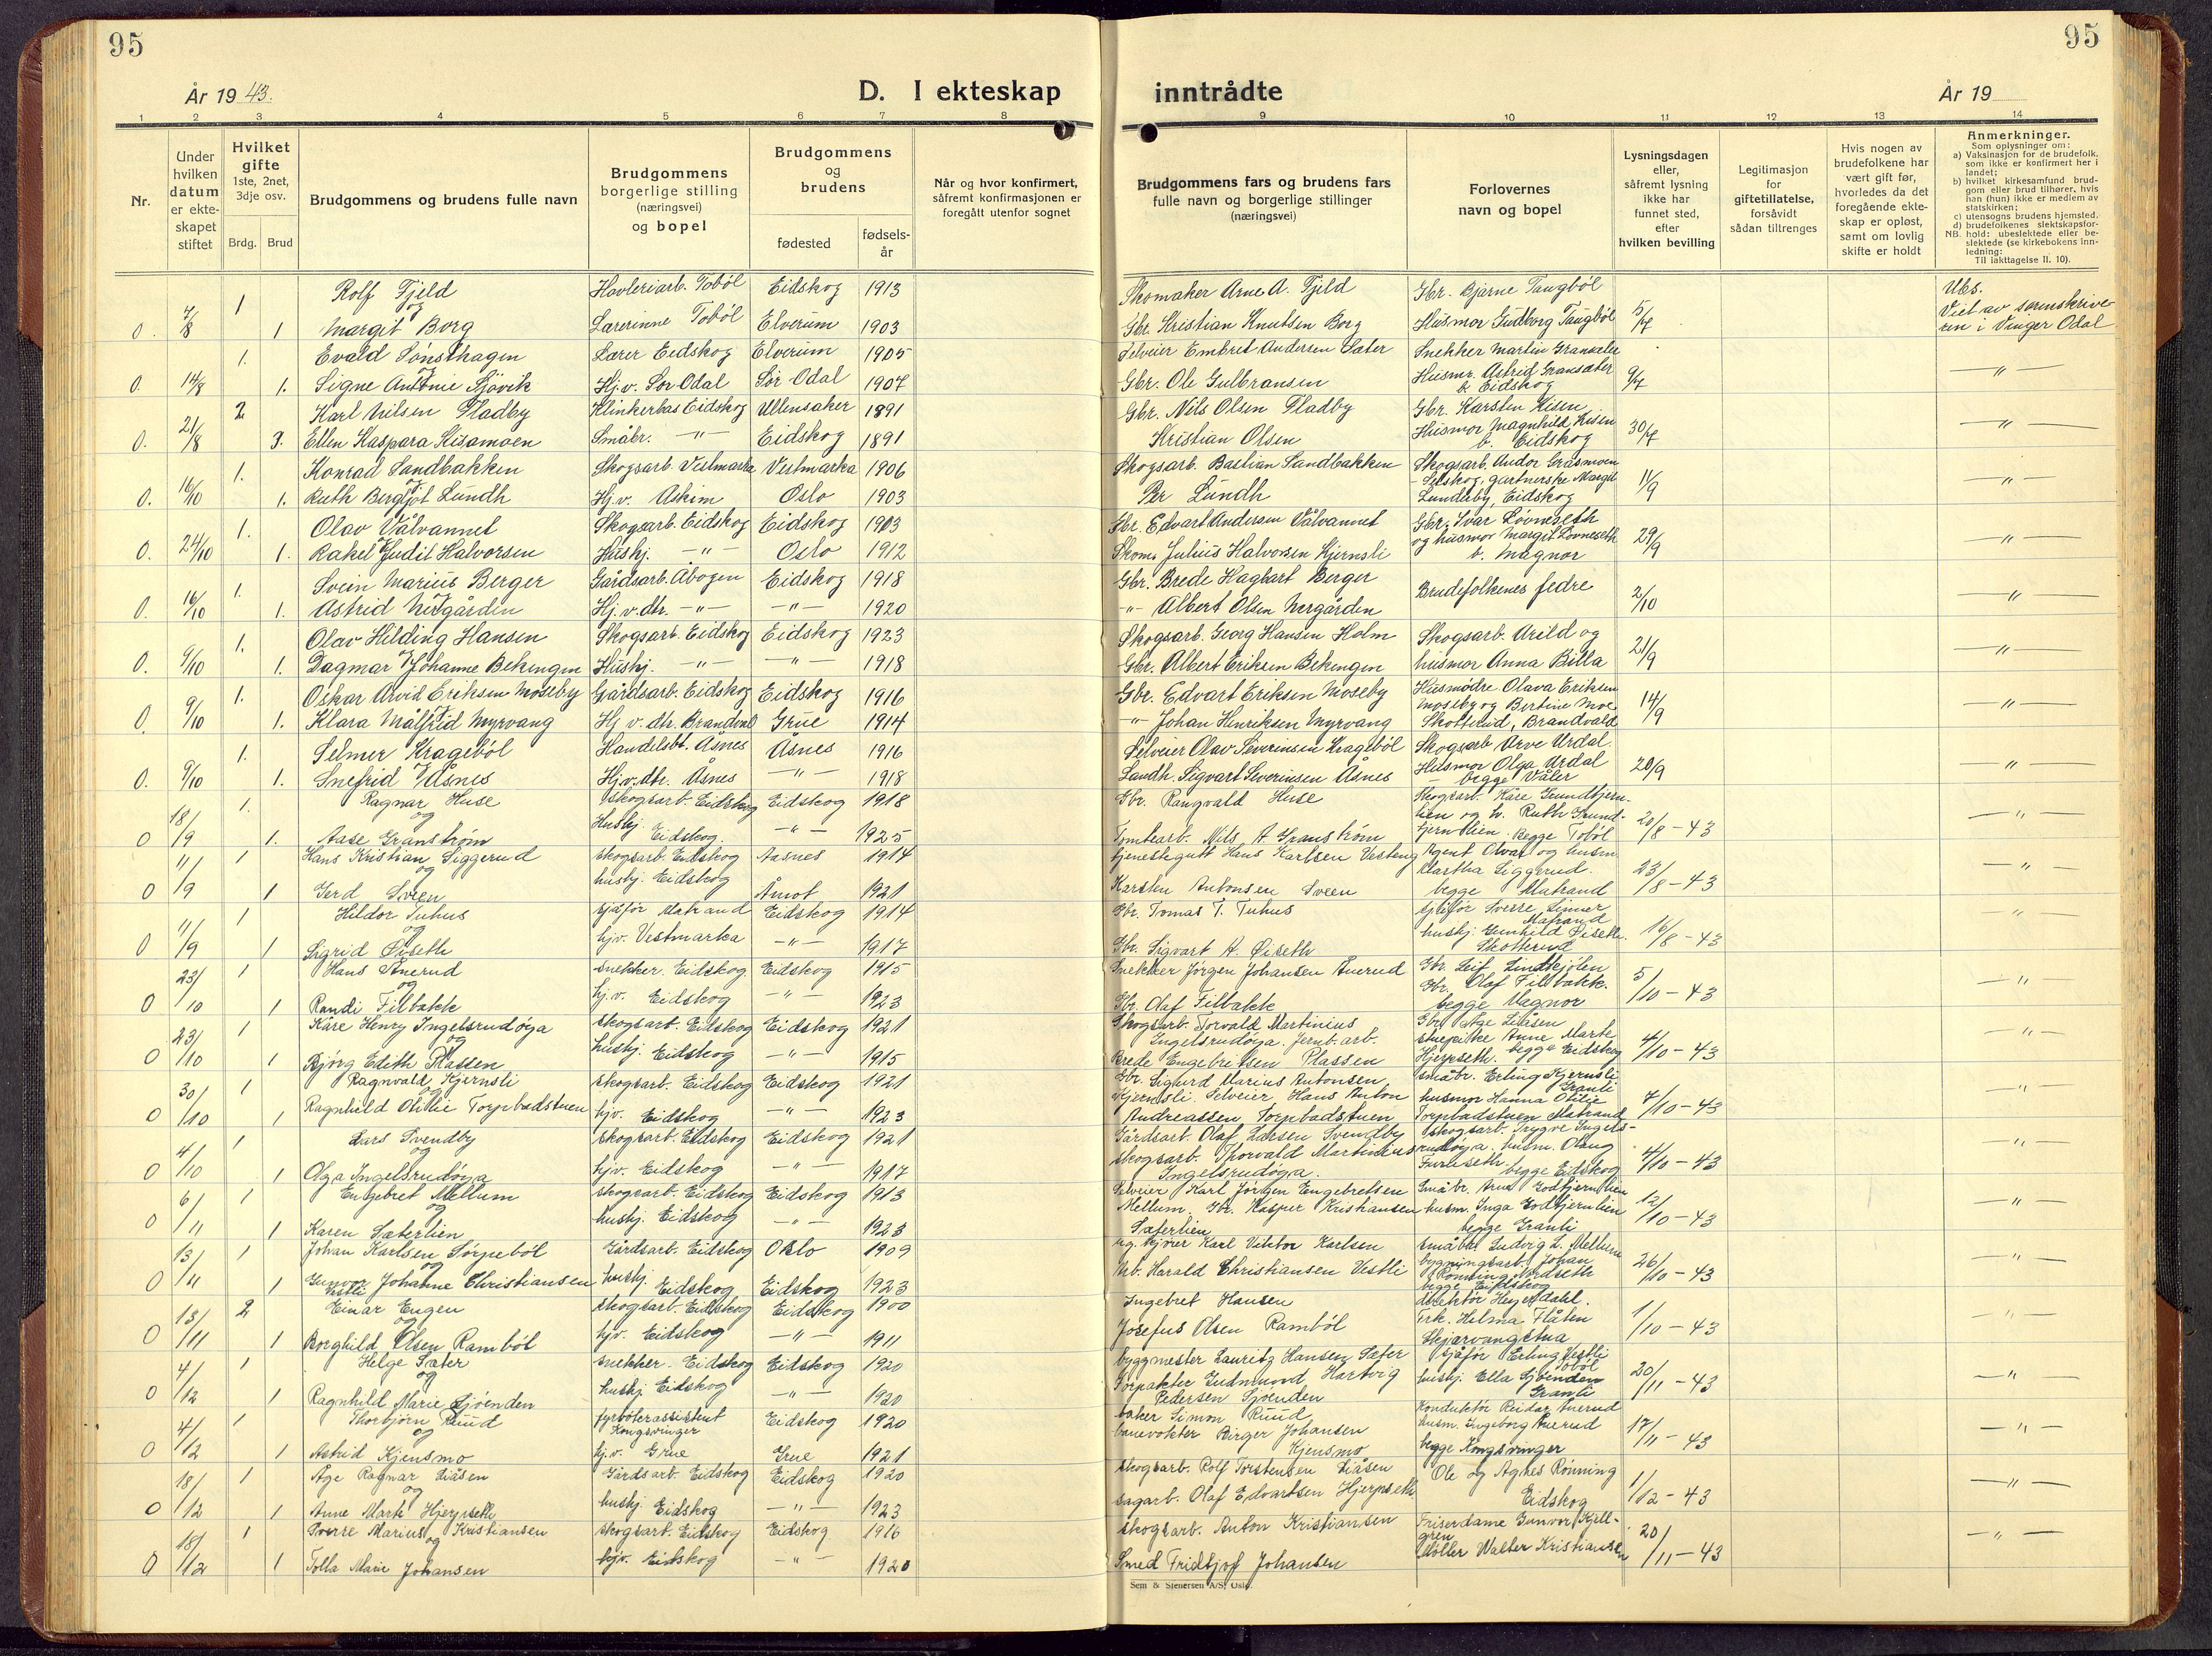 95
95
År 1943.
D. I ekteskap inntrådte
År 19
1 2 3 4 5 6 7 8 9 10 11 12 13 14
Nr.
Under hvilken datum er ekte-skapet stiftet
Hvilket gifte 1ste, 2net, 3dje osv.
Brdg. Brud
Brudgommens og brudens fulle navn
Brudgommens borgerlige stilling (næringsvei) og bopel
Brudgommens og brudens
fødested
fødsels-år
Når og hvor konfirmert, såfremt konfirmasjonen er foregått utenfor sognet
Brudgommens fars og brudens fars fulle navn og borgerlige stillinger (næringsvei)
Forlovernes navn og bopel
Lysningsdagen eller, såfremt lysning ikke har funnet sted, efter hvilken bevilling
Legitimasjon for giftetillatelse, forsåvidt sådan tiltrenges
Hvis nogen av brudefolkene har vært gift før, hvorledes da det foregående ekte-skap er opløst, samt om lovlig skifte er holdt
Anmerkninger.
Som oplysninger om:
a) Vaksinasjon for de brudefolk, som ikke er konfirmert her i landet;
b) hvilket kirkesamfund brud-gom eller brud tilhører, hvis han (hun) ikke er medlem av statskirken;
c) utensogns brudens hjemsted.
d) brudefolkenes slektskapsfor-
NB. hold: ubeslektede eller be-slektede (se kirkebokens inn-ledning:
Til iakttagelse II. 10).
1 Rolf Fjeld Høvleriarb. Tobøl Eidskog 1913 Skomaker Arne A. Fjeld Gbr. Bjarne Taugbøl Ubs.
0. 7/8 1 og Margit Borg Lærerinne Tobøl Elverum 1903 Gbr. Kristian Knutsen Borg Husmor Gudborg Taugbøl 5/7 Viet av sorenskriveren i Vinger Odal
1. Evald Sønsthagen Lærer Eidskog Elverum 1905 Selveier Embret Andersen Sæter Snekker Martin
0. 14/8 1. Signe Hj.v. Sør Odal Sør Odal 1907 Gbr. Ole Gulbransen Husmr. Astrid b. Eidskog 9/7 — " —
2. Karl Nilsen Fladby Eidskog Ullensaker 1891 Gbr. Nils Olsen Fladby Gbr. Karsten Kisen
0. 21/8 3. Ellen Kaspara Kisamoen Småbr. — " — Eidskog 1891 Kristian Olsen Husmor Magnhild Kisen b. Eidskog 30/7 — " —
1. Konrad Sandbakken Skogsarb. Vestmarka Vestmarka 1906 Skogsarb. Bastian Sandbakken Skogsarb. Andor Gråsmoen
0. 16/10 1. og Ruth Bergljot Lundh Hj.v. Askim Oslo 1903 Per Lundh gartnerske Margit Lunderby, Eidskog 11/9 — " —
1. Olav Vålvannet Skogsarb. Eidskog Eidskog 1903 Gbr. Edvart Andersen Vålvannet Gbr. Ivar Løvneseth
0. 24/10 1. Rakel Judit Halvorsen Hushj. — " — Oslo 1912 Skom. Julius Halvorsen Kjernsli og husmor Margit Løvneseth b. Magnor 29/9 — " —
1. Svein Marius Berger Gårdsarb. Åbogen Eidskog 1918 Gbr. Brede Hagbart Berger Brudefolkenes fedre
0. 16/10 1. Astrid Nergården Hj.v.dtr. — " — — " — 1920 — " — Albert Olsen Nergården 2/10 — " —
1. Olav Hilding Hansen Skogsarb. Eidskog Eidskog 1923 Skogsarb. Georg Hansen Holm Skogsarb. Arild og
0. 9/10 1. og Dagmar Johanne Bekengen Hushj. — " — — " — 1918 Gbr. Albert Eriksen Bekengen husmor Anna Billa 21/9 — " —
1. Oskar Arvid Eriksen Moseby Gårdsarb. Eidskog Eidskog 1916 Gbr. Edvart Eriksen Moseby Husmødre Olava Eriksen Moseby og Bertine Moe
0. 9/10 1. Klara Målfrid Myrvang Hj.v.dtr. Brandval Grue 1914 — " — Johan Henriksen Myrvang Skotterud, Brandvald 14/9 — " —
1. Selmer Kragebøl Handelsbt. Åsnes Åsnes 1916 Selveier Olav Severinsen Kragebøl Skogsarb. Arve Urdal.
0. 9/10 1. og Snefrid Åsnes Hj.v.dtr. Åsnes — " — 1918 Landh. Sigvart Severinsen Åsnes Husmor Olga Urdal begge Våler 20/9 — " —
1. Ragnar Huse skogsarb. Eidskog Eidskog 1918 Gbr. Rangvald Huse Skogsarb. Kåre
0 18/9 1. og Aase Granstrøm Hushj. Eidskog. — " — 1925 Tomtearb. Nils A. Granstrøm Ruth Begge Tobøl 20/8 – 43 — " —
1 Hans Kristian Siggerud skogsarb. Eidskog Aasnes 1914 tjenestegutt Hans Karlsen Vesteng Agent Olvar og husm.
0 11/9 1 og Gerd Sveen hushj. Eidskog Åmot 1921 Karsten Antonsen Sveen Martha Siggerud. begge Matrand 23/8 – 43 — " —
1 Hildor Tuhus sjåfør Matrand Eidskog 1914 Gbr. Tomas T. Tuhus sjåfør Sverre Linner Matrand
0 11/9 1 og Sigrid Øiseth hjv. Vestmarka — " — 1917 Gbr. Sigvart A. Øiseth hushj. Gunhild Øiseth. Skotterud 16/8 – 43 — " —
1 Hans Ånerud snekker. Eidskog Eidskog 1915 Snekker Jørgen Johansen Ånerud Gbr. Leif Lindkjølen
0 23/10 1 og Randi Tilbakk hj.v. Eidskog — " — 1923 Gbr. Olaf Tilbakk Gbr. Olaf Tilbakk. begge Magnor 5/10 – 43 — " —
1 Kåre Henry Ingelsrudøya skogsarb. Eidskog Eidskog 1921 Skogsarb. Torvald Martinius Ingelsrudøya. Jernb.arb. Gbr. Åge Liåsen
0 23/10 1 og Bjørg Edith Plassen hushj. Eidskog — " — 1915 Brede Engebretsen Plassen Anne Marte Hjerpseth. begge Eidskog 4/10 – 43 — " —
1 Ragnvald Kjernsli skogsarb. Eidskog Eidskog 1921 Gbr. Sigurd Marius Antonsen Kjernsli. Selveier Hans Anton småbr. Erling Kjernsli Granli
0 30/10 1 og Ragnhild Otilie Torpbadstuen hjv. Eidskog — " — 1923 Andreassen Torpbadstuen husmor Hanna Otilie Torpbadstuen Matrand 7/10 – 43 — " —
1 Lars Svendby skogsarb. Eidskog Eidskog 1921 Gårdsarb. Olaf Larsen Svendby skogsarb. Trygve Ingels-
0 4/10 1 og Olga Ingelsrudøya hjv. Eidskog — " — 1917 skogsarb. Thorvald Martinius Ingelsrudøya. rudøya. husm. Olaug Furuseth. begge Eidskog 4/10 – 43 — " —
1 Engebret Mellum skogsarb. Eidskog Eidskog 1913 Selveier Karl Jørgen Engebretsen Småbr. Arne Godtjernlien
0 6/11 1 og Karen Sæterlien hushj. Eidskog — " — 1923 Mellum. Gbr. Kasper Kristiansen Sæterlien husm. Inga Godtjernlien begge Granli 12/10 – 43 — " —
1 Johan Karlsen Sørpebøl Gårdsarb. Eidskog Oslo 1909 Karl Viktor Karlsen småbr. Ludvig L. Mellum
0 13/11 1 og Gunvor Johanne Christiansen Vestli hushj. Eidskog Eidskog 1923 Arb. Harald Christiansen Vestli bygningsarb. Johan begge Eidskog 26/10 – 43 — " —
2 Einar Engen skogsarb. Eidskog Eidskog 1900 Ingebret Hansen direktør Heyerdahl.
0 13/11 1 og Borghild Olsen Rambøl hjv. Eidskog — " — 1911 Josefus Olsen Rambøl Frk. Helma Flåten Skjærvangstua 1/10 – 43 — " —
1 Helge Sæter snekker. Eidskog Eidskog 1920 byggmester Lauritz Hansen Sæter sjåfør Erling Vestli Tobøl
0 4/12 1 og Ragnhild Marie Sjøenden hushj. Eidskog — " — 1920 Forpakter Gudmund Hartvig Pedersen Sjøenden hushj. Ella Sjøenden Granli 20/11 – 43 — " —
1 Thorbjørn Ruud fyrbøterassistent Kongsvinger Eidskog 1920 baker Simon Ruud Konduktør Reidar Ånerud
0 4/12 1 og Astrid Kjensmo hj.v. Grue Grue 1921 banevokter Birger Johansen Kjensmo husm. Ingeborg Ånerud begge Kongsvinger 17/11 – 43 — " —
1 Åge Ragnar Liåsen Gårdsarb. Eidskog Eidskog 1920 skogsarb. Rolf Torstensen Liåsen Ole og Agnes Rønning
0 18/12 1 og Anne Marte Hjerpseth hushj. Eidskog — " — 1923 sagarb. Olaf Edvartsen Hjerpseth Eidskog 1/12 – 43 — " —
1 Sverre Marius Kristiansen skogsarb. Eidskog Eidskog 1916 skogsarb. Anton Kristiansen Friserdame Gunvor Kjellgren
0 18/12 1 og Tolla Marie Johansen hjv. Eidskog — " — 1920 Smed Fridtjof Johansen Møller Walter Kristiansen 20/11 – 43 — " —
Sem & Stenersen A/S, Oslo.